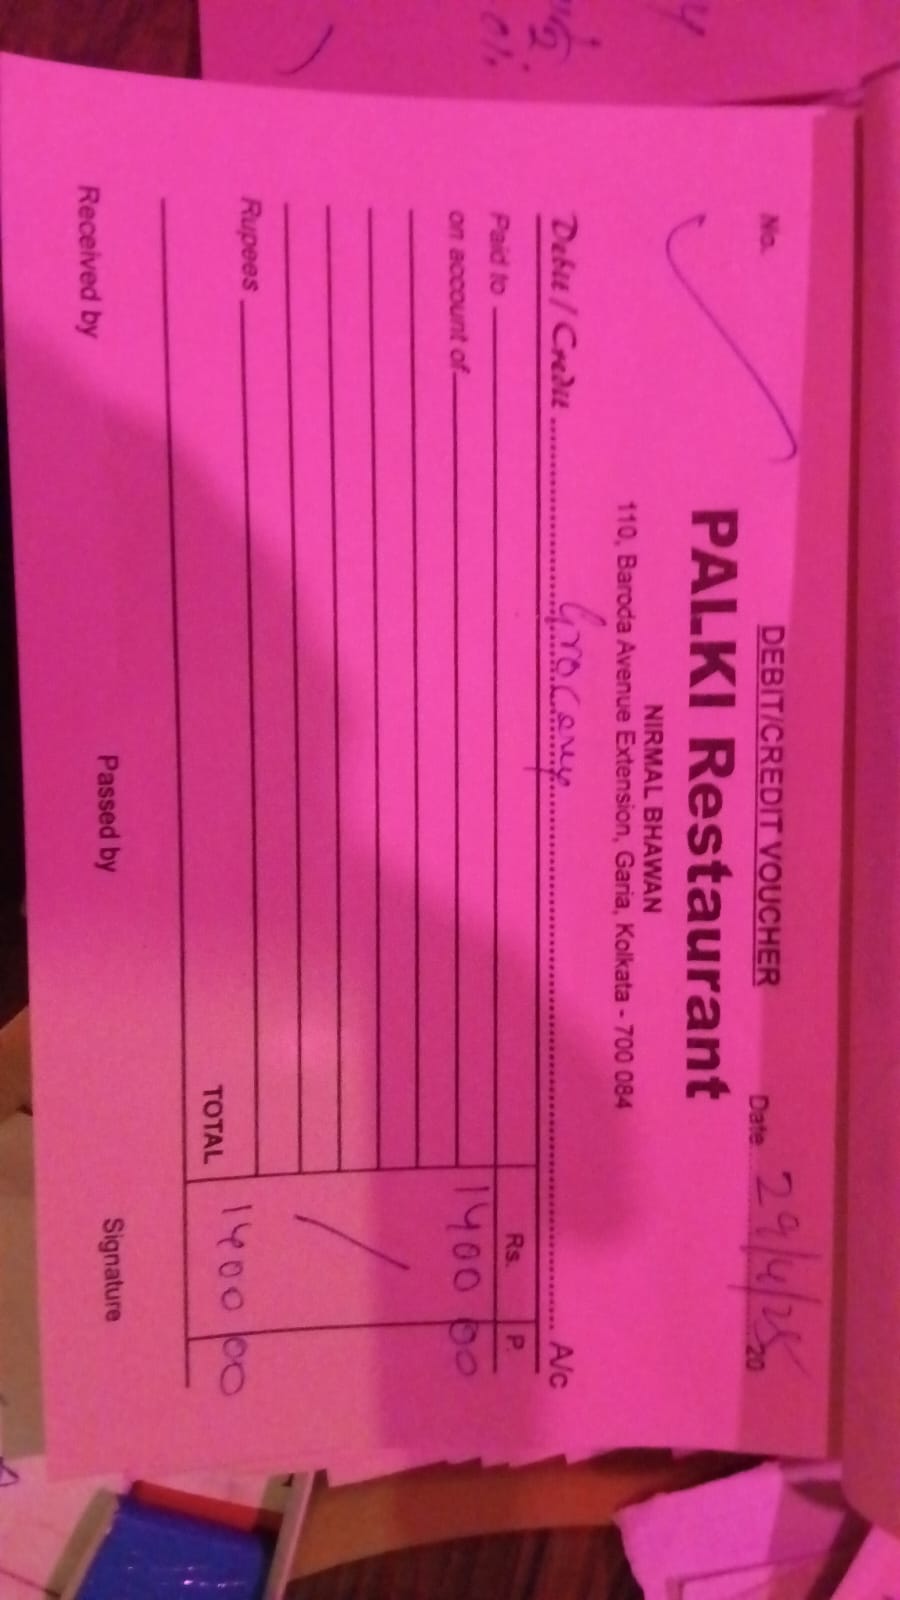 No.
DEBIT/CREDIT VOUCHER
Date 29/4/25 20
PALKI Restaurant
NIRMAL BHAWAN
110, Baroda Avenue Extension, Garia, Kolkata - 700 084
Debit / Credit Grocery A/c
Rs. P.
Paid to
on account of 1400 00
Rupees
TOTAL 1400 00
Received by Passed by Signature